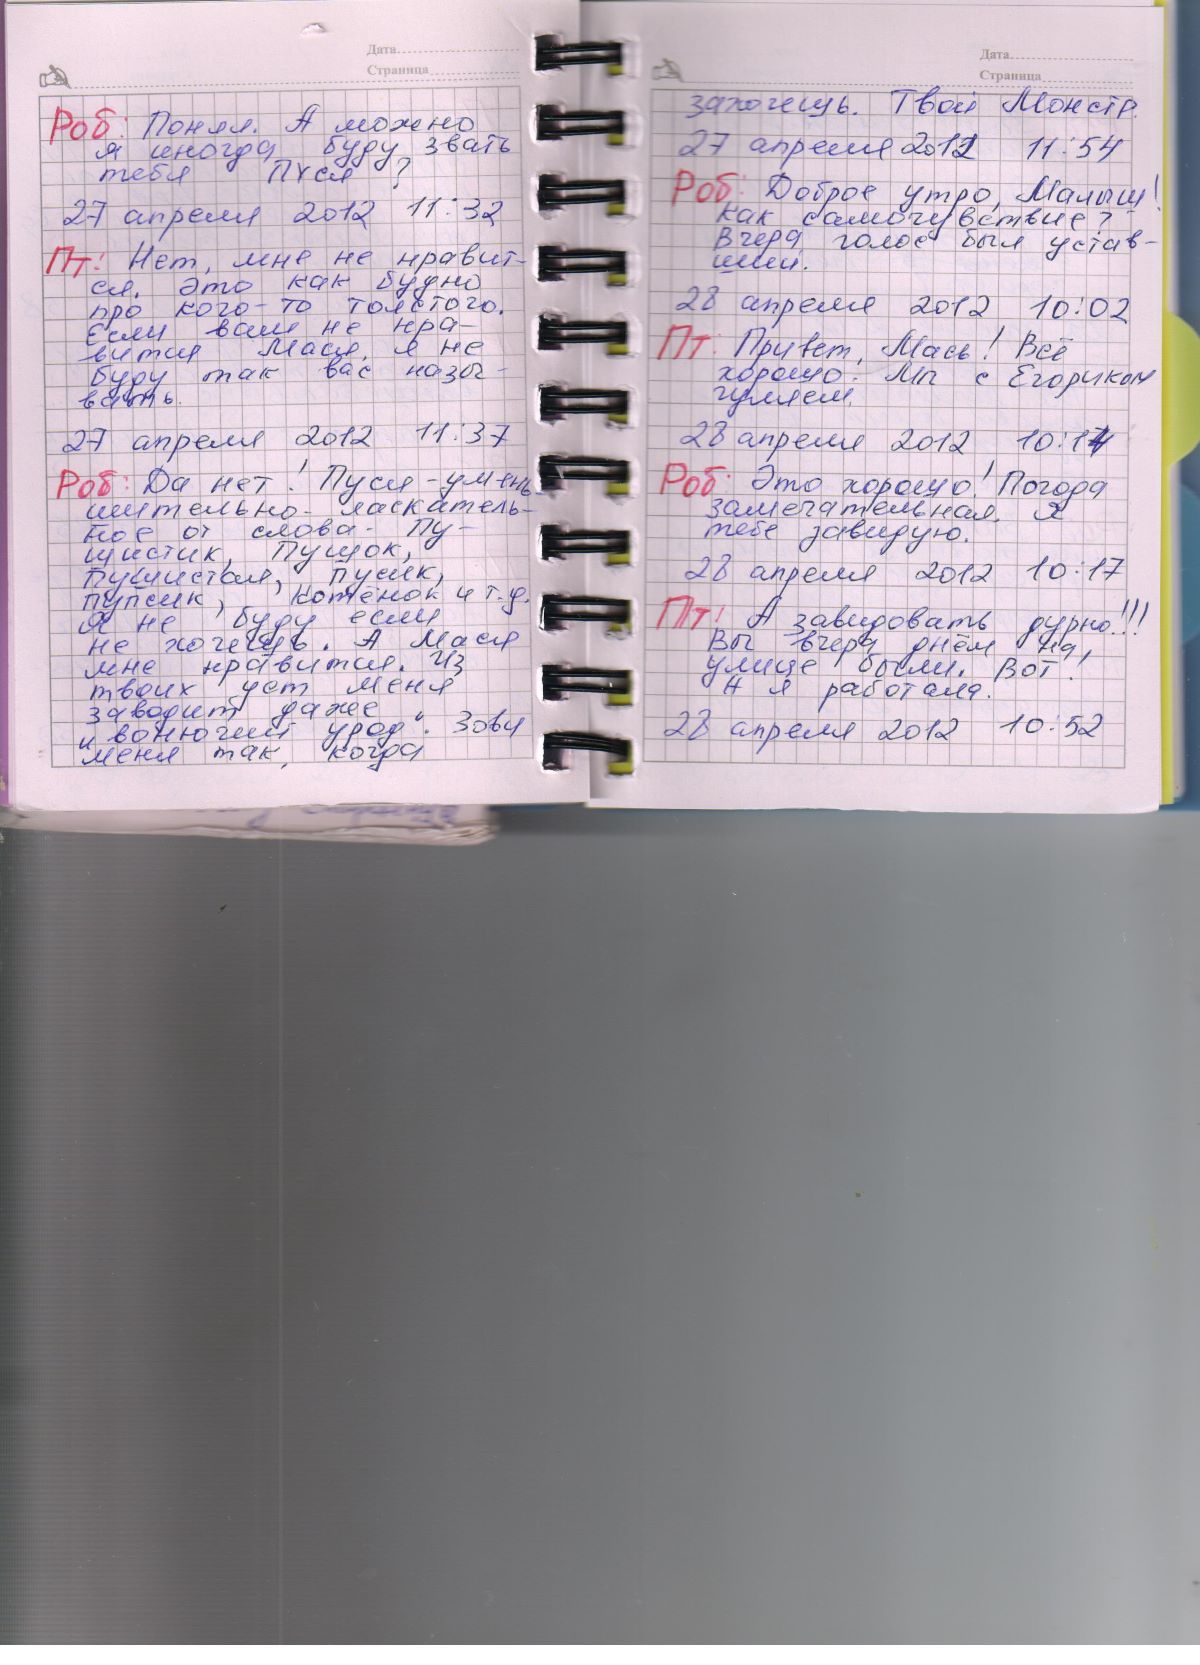 Дата
Страница
Роб: Понял. А можно
я иногда буду звать
тебя Пуся?
27 апреля 2012 11:32
Пт: Нет, мне не нравит-
ся. Это как будно
про кого-то толстого.
Если вам не нра-
вится Мася, я не
буду так вас назы-
вать.
27 апреля 2012 11:37
Роб: Да нет! Пуся - умень-
шительно-ласкатель-
ное от слова - Пу-
шистик, Пушок,
Пушистая, Пусик,
пупсик, котёнок и т.д.
Я не буду если
не хочешь. А Мася
мне нравится. Из
твоих уст меня
заводит даже
"вонючий урод". Зови
меня так, когда
Дата
Страница
захочешь. Твой Монстр.
27 апреля 2012 11:54
Роб: Доброе утро, Малыш!
Как самочувствие?
Вчера голос был устав-
ший.
28 апреля 2012 10:02
Пт: Привет, Мась! Всё
хорошо! Мы с Егориком
гуляем.
28 апреля 2012 10:14
Роб: Это хорошо! Погода
замечательная. Я
тебе завидую.
28 апреля 2012 10:17
Пт: А завидовать дурно!!!
Вы вчера днём на
улице были. Вот!
А я работала.
28 апреля 2012 10:52